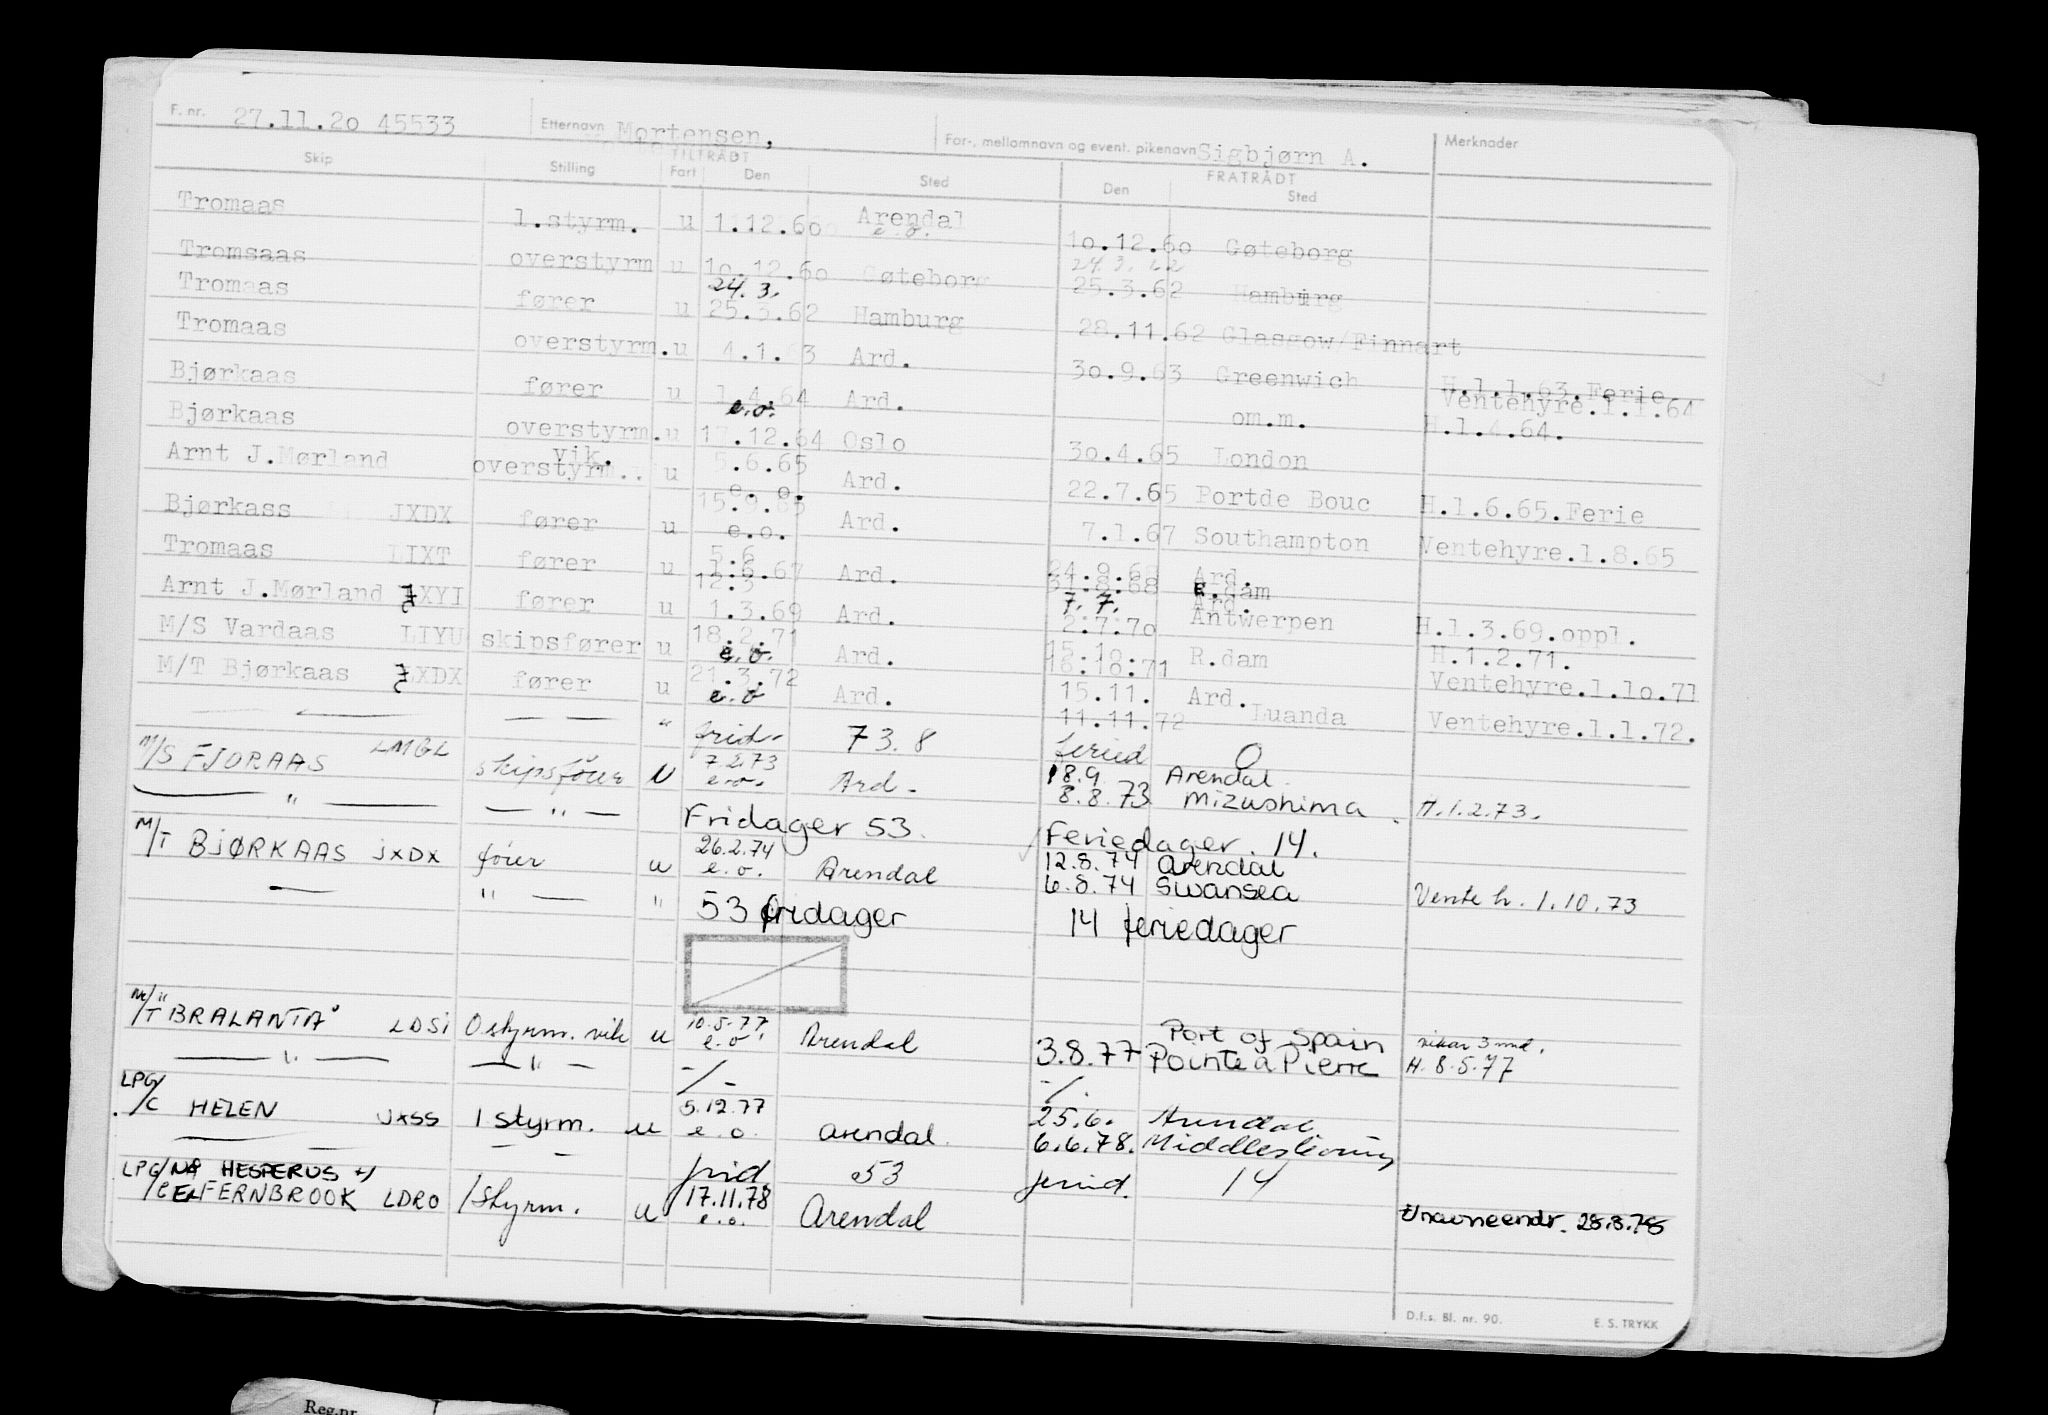 F. nr. 27.11.20 45533 Etternavn Mortensen, For-, mellomnavn og event. pikenavn Sigbjørn A. Merknader
Skip Stilling TILTRÅDT Fart Den Sted FRATRÅDT Den Sted
Tromaas 1.styrm. u 1.12.60 Arendal e.o. 10.12.60 Gøteborg
Tromsaas overstyrm u 10.12.60 Gøteborg 24.3.62 25.3.62 Hamburg
Tromaas fører u 24.3. 25.3.62 Hamburg 28.11.62 Glasgow/Finnart
Tromaas overstyrm. u 4.1.63 Ard. 30.9.63 Greenwich H.1.1.63.Ferie
Bjørkaas fører u 1.4.64 e.o. Ard. om.m. Ventehyre.1.1.64 H.1.4.64.
Bjørkaas overstyrm. u 17.12.64 Oslo 30.4.65 London
Arnt J.Mørland vik. overstyrm.. u 5.6.65 e.o. Ard. 22.7.65 Portde Bouc H.1.6.65.Ferie
Bjørkass JXDX fører u 15.9.65 e.o. Ard. 7.1.67 Southampton Ventehyre.1.8.65
Tromaas LIXT fører u 5.6 1.6.67 Ard. 24.9.68 Ard. 31.8.68 R.dam
Arnt J.Mørland JXYI fører u 12.3 1.3.69 Ard. 7.7. Ard. 2.7.70 Antwerpen H.1.3.69.oppl.
M/S Vardaas LIYU skipsfører u 18.2.71 e.o. Ard. 15.10. 18.10.71 R.dam H.1.2.71.
M/T Bjørkaas JXDX fører u 21.3.72 e.o Ard. 15.11. Ard. 11.11.72 Luanda Ventehyre.1.10.71
— — — " frid. 73.8 feried 0 Ventehyre.1.1.72.
M/S FJORAAS LMGL skipsfører u 7.2.73 e.o. Ard. 18.9 Arendal 8.8.73 Mizushima H.1.2.73.
— " — — " — Fridager 53. Feriedager. 14.
M/T BJØRKAAS JXDX fører u 26.2.74 e.o. Arendal 12.8.74 Arendal 6.8.74 Swansea Vente h. 1.10.73
— " — " 53 fridager 14 feriedager
M/T "BRALANTA" LDSI O styrm. vik u 10.5.77 e.o. Arendal 3.8.77 Port of Spain Pointe a Pierre vikar 3 mnd. H. 8.5.77
— " — — " — -/- -/.
LPG/C HELEN JXSS 1 styrm. u 5.12.77 e.o. Arendal. 25.6. Arendal. 6.6.78.
— — — — frid 53 feried. 14
LPG/C NÅ HESPERUS x) EX FERNBROOK LDRO 1 styrm. u 17.11.78 e.o. Arendal x) navneendr. 28.8.78
D.f.s. Bl. nr. 90. E. S. TRYKK
Reg.nr.